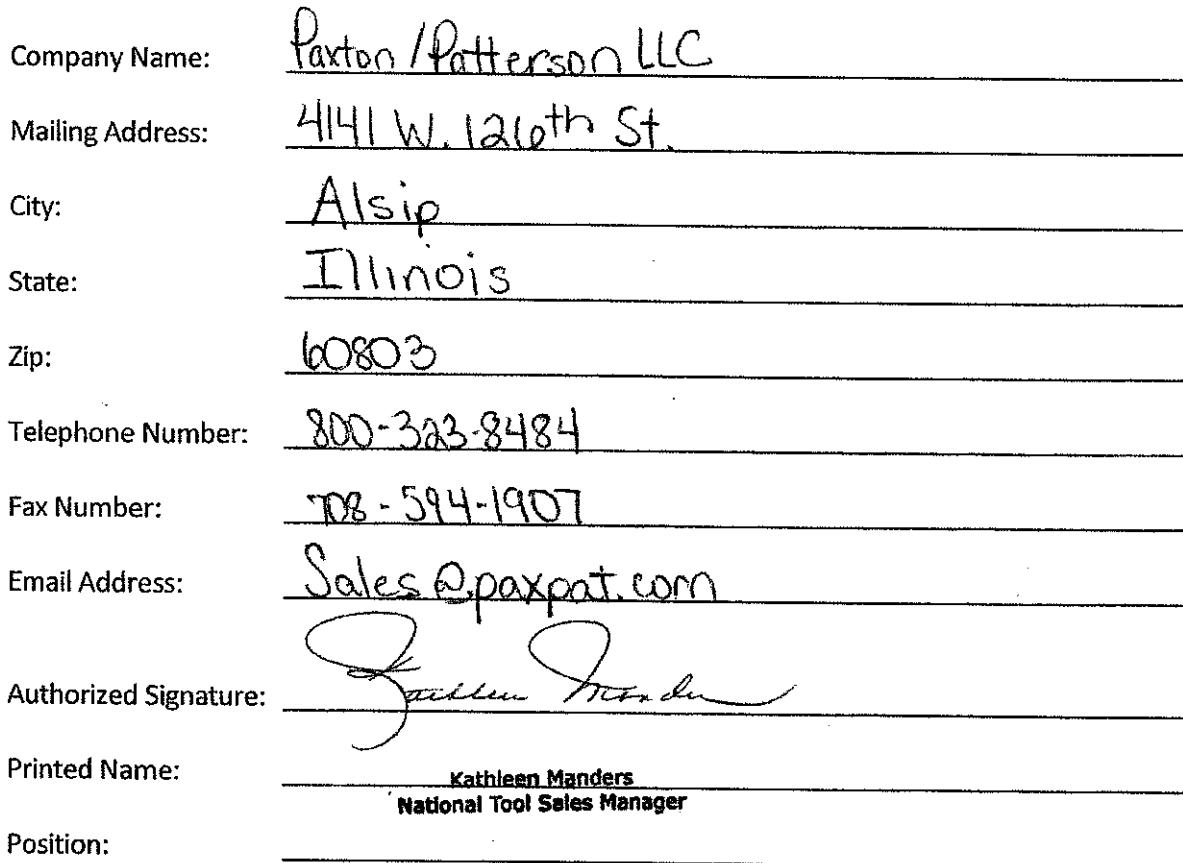 Company Name: Paxton / Patterson LLC
Mailing Address: 4141 W. 126th St.
City: Alsip
State: Illinois
Zip: 60803
Telephone Number: 800-323-8484
Fax Number: 708-594-1907
Email Address: Sales@paxpat.com
Authorized Signature: Kathleen Manders
Printed Name: Kathleen Manders
National Tool Sales Manager
Position: